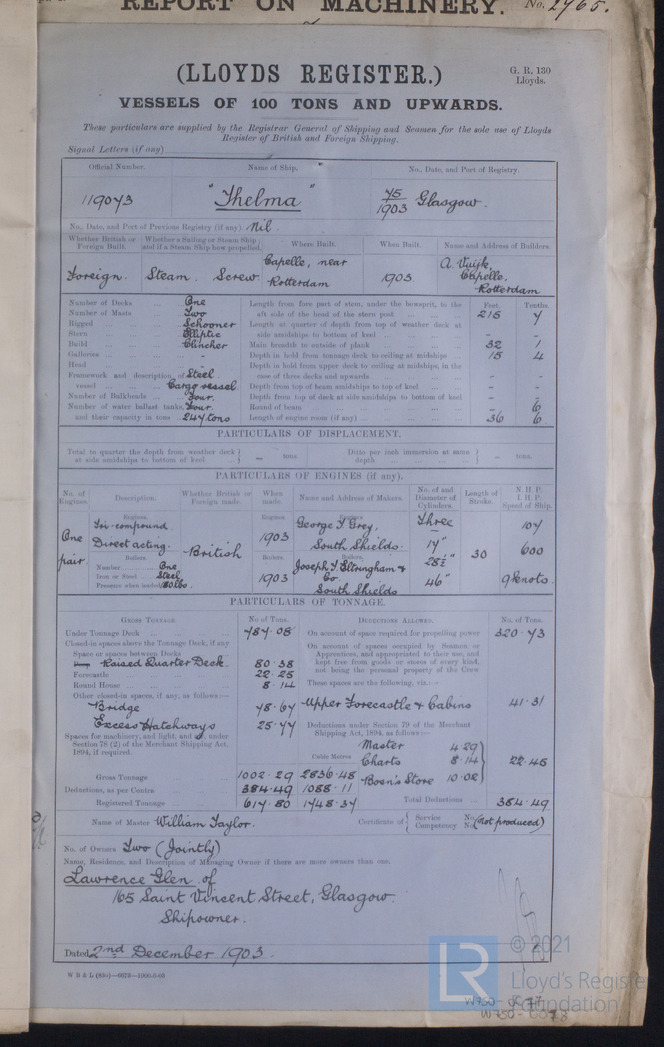 REPORT ON MACHINERY. No. 2965.
(LLOYDS REGISTER.)
G. R. 130
Lloyds.
VESSELS OF 100 TONS AND UPWARDS.
These particulars are supplied by the Registrar General of Shipping and Seamen for the sole use of Lloyds
Register of British and Foreign Shipping.
Signal Letters (if any)
Official Number. Name of Ship. No., Date, and Port of Registry.
119073 "Thelma" 75/1903 Glasgow.
No., Date, and Port of Previous Registry (if any). Nil.
Whether British or Foreign Built. Whether a Sailing or Steam Ship, and if a Steam Ship how propelled. Where Built. When Built. Name and Address of Builders.
Foreign. Steam. Screw. Capelle, near Rotterdam 1903. A. Vuijk, Capelle, Rotterdam
Number of Decks ... One Length from fore part of stem, under the bowsprit, to the Feet. Tenths.
Number of Masts ... Two aft side of the head of the stern post ... 215 7
Rigged ... Schooner Length at quarter of depth from top of weather deck at
Stern ... Elliptic side amidships to bottom of keel ... - -
Build ... Clincher Main breadth to outside of plank ... 32 1
Galleries ... - Depth in hold from tonnage deck to ceiling at midships 15 4
Head ... Depth in hold from upper deck to ceiling at midships, in the
Framework and description of Steel case of three decks and upwards ... - -
vessel ... Cargo vessel Depth from top of beam amidships to top of keel ... - -
Number of Bulkheads ... Four. Depth from top of deck at side amidships to bottom of keel - -
Number of water ballast tanks, Four. Round of beam ... - 6
and their capacity in tons .. 247 tons Length of engine room (if any) ... 36 6
PARTICULARS OF DISPLACEMENT.
Total to quarter the depth from weather deck at side amidships to bottom of keel ... } - tons. Ditto per inch immersion at same depth ... } - tons.
PARTICULARS OF ENGINES (if any).
No. of Engines. Description. Whether British or Foreign made. When made. Name and Address of Makers. No. of and Diameter of Cylinders. Length of Stroke. N. H. P. I. H. P. Speed of Ship.
Engines. Engines Engines
One Tri-compound George T Grey, Three 107
Direct acting. 1903 South Shields. 17"
pair. Boilers. British Boilers. Boilers. 28½" 30 600
Number ... One Joseph T. Eltringham &
Iron or Steel ... Steel 1903 Co 46" 9 knots.
Pressure when loaded 180 lbs. South Shields
PARTICULARS OF TONNAGE.
GROSS TONNAGE. No. of Tons. DEDUCTIONS ALLOWED. No. of Tons.
Under Tonnage Deck ... 787.08 On account of space required for propelling power 320.73
Closed-in spaces above the Tonnage Deck, if any On account of spaces occupied by Seamen or
Space or spaces between Decks Apprentices, and appropriated to their use, and
Poop Raised Quarter Deck. 80.38 kept free from goods or stores of every kind,
Forecastle ... 22.25 not being the personal property of the Crew
Round House ... 8.14 These spaces are the following, viz.:—
Other closed-in spaces, if any, as follows:—
Bridge 78.67 Upper Forecastle & Cabins 41.31
Excess Hatchways 25.77 Deductions under Section 79 of the Merchant
Spaces for machinery, and light, and air, under Shipping Act, 1894, as follows:—
Section 78 (2) of the Merchant Shipping Act, Master 4.29
1894, if required. Cubic Metres Charts 8.14 } 22.45
Gross Tonnage 1002.29 2836.48 Bosn's Store 10.02
Deductions, as per Contra ... 384.49 1088.11
Registered Tonnage 617.80 1748.37 Total Deductions ... 384.49
Name of Master William Taylor. Certificate of { Service No. Competency No. (not produced)
No. of Owners Two (Jointly)
Name, Residence, and Description of Managing Owner if there are more owners than one.
Lawrence Glen of
165 Saint Vincent Street, Glasgow.
Shipowner.
Dated 2nd December 1903.
W B & L
LR © 2021
Lloyd's Register
Foundation